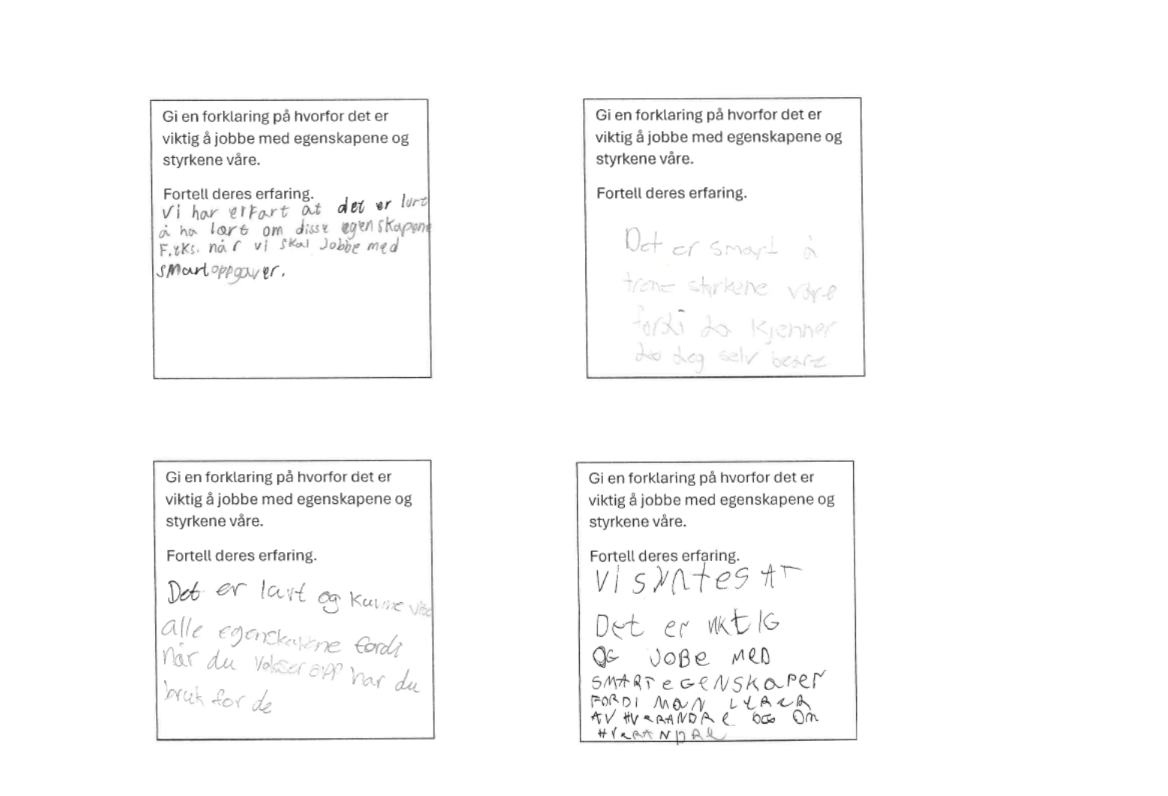 Gi en forklaring på hvorfor det er
viktig å jobbe med egenskapene og
styrkene våre.
Fortell deres erfaring.
Vi har erfart at det er lurt
å ha lært om disse egenskapene
F.eks. når vi skal jobbe med
smartoppgaver.
Gi en forklaring på hvorfor det er
viktig å jobbe med egenskapene og
styrkene våre.
Fortell deres erfaring.
Det er smart å
trene styrkene våre
fordi da kjenner
do deg selv beare
Gi en forklaring på hvorfor det er
viktig å jobbe med egenskapene og
styrkene våre.
Fortell deres erfaring.
Det er lurt og kunne vise
alle egenskapene fordi
når du vokser opp har du
bruk for de
Gi en forklaring på hvorfor det er
viktig å jobbe med egenskapene og
styrkene våre.
Fortell deres erfaring.
Vi syntes AT
Det er viktIG
OG JOBe MeD
SMARTeGeNSKaPeR
FORDI MaN LæReR
AV HVeRANDRe OG Om
HVeRANDRe